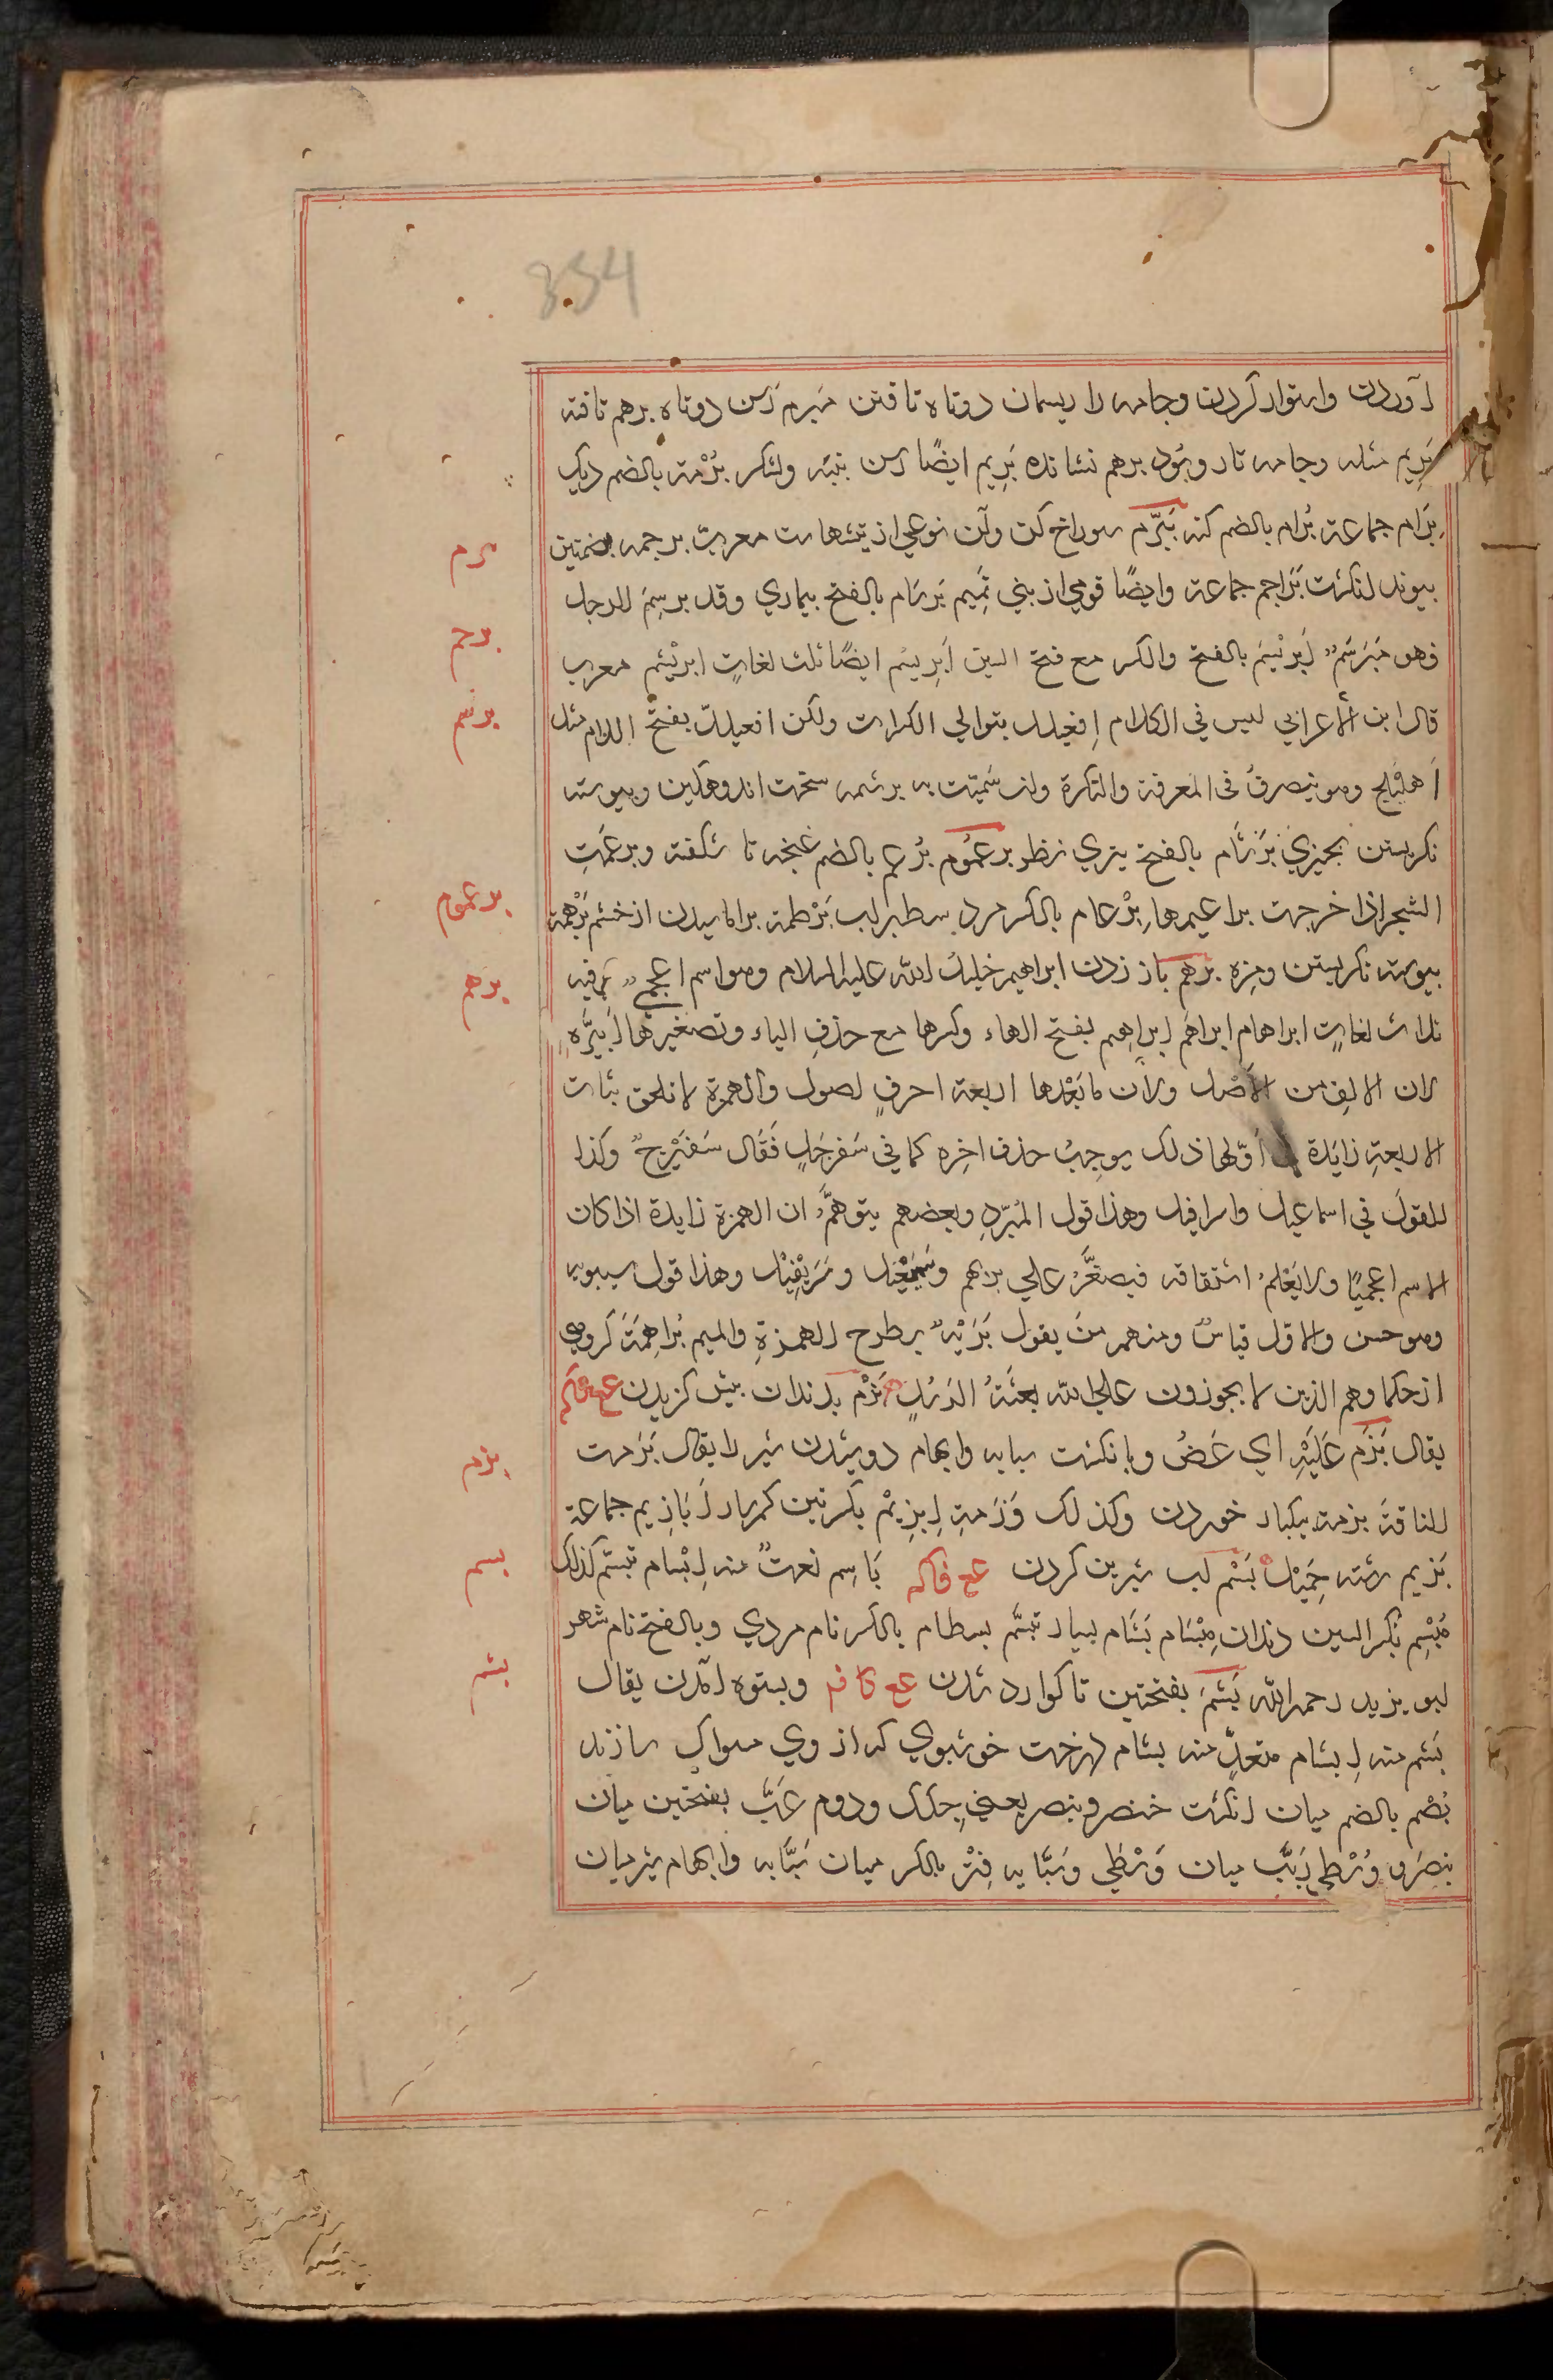 854
آوردن واستوار کردن وجامه را ریسمان دوتاه تافتن مبرم رسن دوتاه برهم تافته
بَرِیم مثله وجامه تار وپُود برهم نشانده بَرِیم ایضًا رسن پنبه ولشکر بُرْمة بالضم دیک
بِرَام جماعة بُرام بالضم کنه بَیْرَم سوراخ کن وآن نوعی از تیشهاست معرب برجمه بضمتین
پیوند انکشت بَرَاجم جماعة وایضًا قومی از بني تَمِیم بَرسَام بالفتح بیماري وقد برسِمَ الرجل
فهو مُبَرسَمٌ اَبرَیْسَم بالفتح والکسر مع فتح السین اَبرِیسَم ایضًا ثلث لغاتٍ ابریْشم معرب
قال ابن الأعرابي لیس في الکلام اِفعیلل بتوالي الکسرات ولکن افعیلَل بفتح اللام مثل
اَهلیلَج وهو ینصرفُ في المعرفة والنکرة وان سَمّیت به برشمه سخت اندوهکین وپیوسته
نکریستن بچیزي بَرْشَام بالفتح تیزي نظر برعُموم بُرعم بالضم غنچه نا شکفته وبرعَمَتِ
الشجر اذا خرجت براعیمها بِرْعام بالکسر مرد سطبر لب بَرْطمة براماسیدن از خشم بَرْهَمة
پیوسته نکریستن ومزه برهم باز زدن ابراهیم خلیل الله علیه السلام وهو اسم اعجميٌّ وفیه
ثلاث لغاتٍ ابراهام ابراهَم ابراهِم بفتح الهاء وکسرها مع حذفِ الیاء وتصغیرها اُبَیْرَه
لان الالِف من الأصْل ولان مابَعْدها اربعة احرفٍ اصول والهمزة لا تلحق بنات
الاربعةِ زایدَة اَوّلها ذلک یوجبُ حذف اخِره کما في سَفرجَلٍ فَقَال سَفَیْرِجٌ وکذا
القولَ في اسماعیل واسرافیل وهذا قول المُبرّدِ وبعضهم یتوهمُّ ان الهمزة زایدة اذا کان
الاسم اعجمیًا ولا یَعْلمُ اشتقاقه فیصغّرُ علی بریهم وسُمَیْعِیْل وسُرَیْفِیْل وهذا قول سیبویه
وهو حسن والاوّل قیاسٌ ومنهم منَ یقول بُرَیْهٌ بطرح الهمزةِ والمیم بُراهِمَة کروهی
از حکما وهم الذین لا یجوزون علی الله بعثَةُ الرُسُلِ بَزْم بدندان پیش کزیدن
یقال بَزَم عَلَیْهِ اي عَضُّ وبا نکشت سبابه وابهام دوشیدن شیر را یقال بَزَمت
الناقَة بزمة یکبار خوردن وکذلک وَزَمة اِبزِیْم بکسرتین کمرسار اَبَازِیم جماعة
بَزیم رشته جَمِیْلٌ بَسْم لب شیرین کردن عج فاکه بَاسِم نعتٌ منه اِبْسام تبسّم کذلک
مُبْسِم بکسر السین دندان مِبْسَام بَسَّام بسیار تبسُّم بسطام بالکسر نام مردي وبالفتح نام شهر
ابو یزید رحمه الله بَشَمَ بفتحتین ناکوارد شدن عج کافه وبستوه آمدن یقال
بَشم منه اِبشام متعدٍّ منه بشام درخت خوشبوي که از وي مسواک سازند
بُصْم بالضم میان انکشت خنصر وبنصر یعني چلک ودوم عَتَبٌ بفتحتین میان
بنصر ووُسْطی رَتَبٌ میان وُسْطَی وسَبَّابه فِتْر بالکسر میان سَبَّابه وابهام شبر میان
برم
برجم
برسم
برعموم
برهم
بزم
بسم
بشم